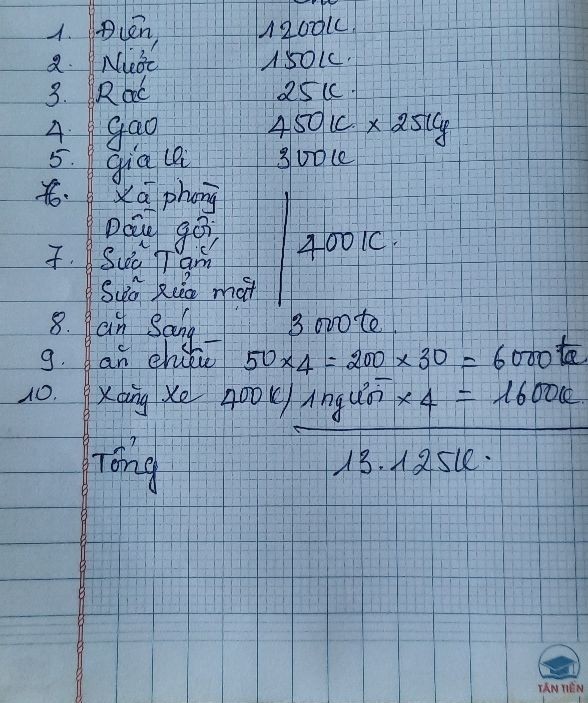 1. Điện 1200K.
2. Nước 150K.
3. Rác 25K.
4. gạo 450K x 25Kg
5. gia vị 300K
6. xà phòng
Dầu gội
7. Sữa Tắm 400K.
Sữa rửa mặt
8. ăn Sáng 3000
9. ăn chiều 50x4 = 200 x 30 = 6000
10. xăng xe 400K/1người x 4 = 1600K
Tổng 13.125K.
TÂN TIẾN